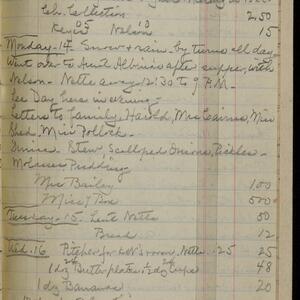 Ch. Collection 2.50
05 10
Keyes Nelson 15
Monday - 14 Snow & rain - by turns all day.
Went over to Aunt Albina's after supper, with
Nelson - Nette away 12:30 to 9 P.M. -
Lee Day here in evening -
Letters to family, Harold, Mrs Cairns, Miss
Shed. Miss Pollock -
Dinner Stew, Scalloped Onions, Pickles -
Molasses Pudding -
Mrs Bailey 1 00
Miss 5 00
Tuesday - 15. Lent Nette 50
Bread 12
Wed. 16 Pitcher for room, Nette 25 25
1 dz Butter plates 1/2 dz Cups 48
1 dz Bananas 20